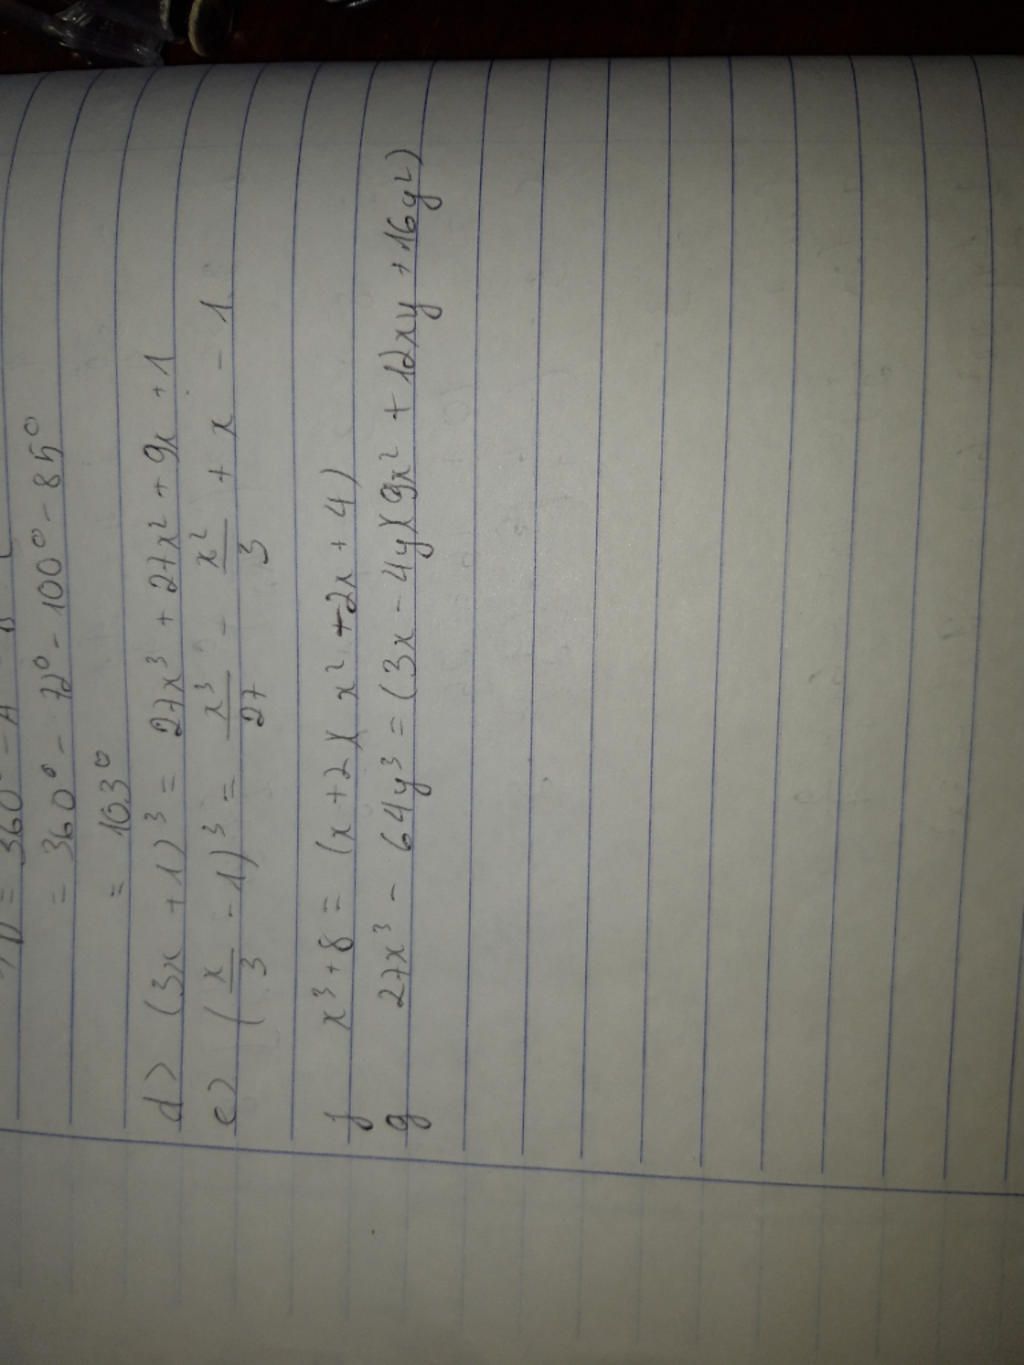 = 360° - 72° - 100° - 85°
= 103°
d) (3x + 1)³ = 27x³ + 27x² + 9x + 1
e) (x/3 - 1)³ = x³/27 - x²/3 + x - 1
f x³ + 8 = (x + 2)(x² + 2x + 4)
g 27x³ - 64y³ = (3x - 4y)(9x² + 12xy + 16y²)